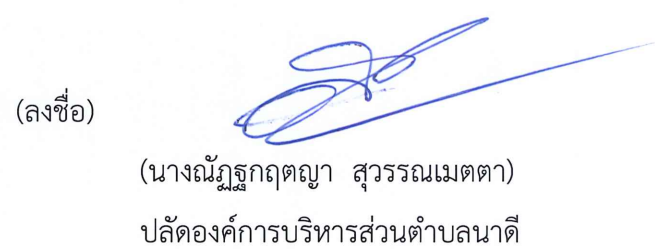 (ลงชื่อ)
(นางณัฏฐกฤตญา สุวรรณเมตตา)
ปลัดองค์การบริหารส่วนตำบลนาดี